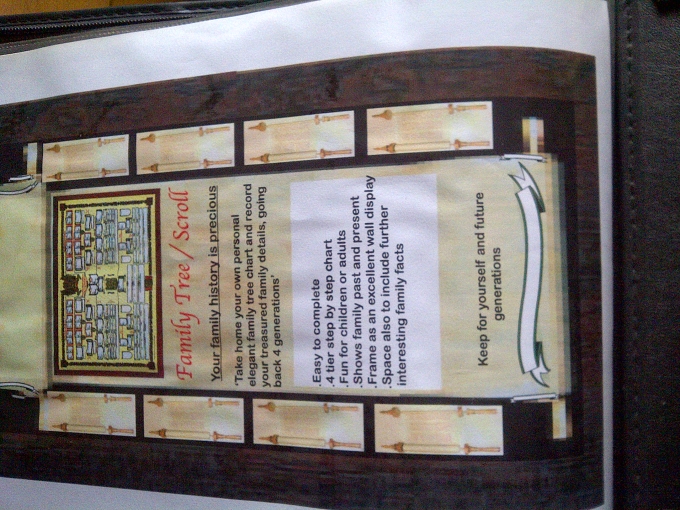 Family Tree / Scroll
Your family history is precious
'Take home your own personal
elegant family tree chart and record
your treasured family details, going
back 4 generations'
.Easy to complete
.4 tier step by step chart
.Fun for children or adults
.Shows family past and present
.Frame as an excellent wall display
.Space also to include further
interesting family facts
Keep for yourself and future
generations